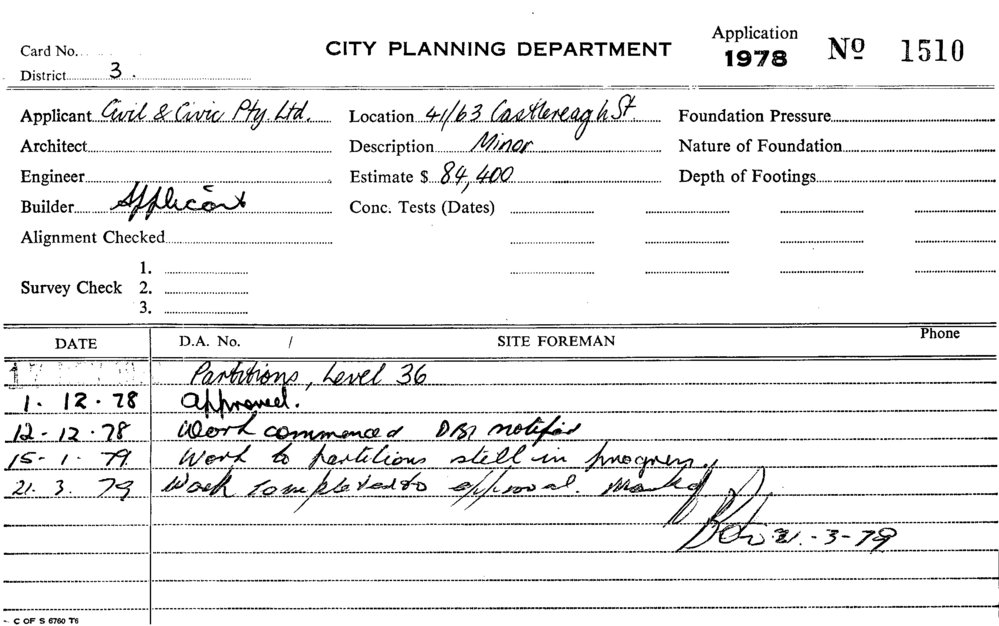 Card No.
CITY PLANNING DEPARTMENT
Application 1978 No 1510
District 3.
Applicant Civil & Civic Pty. Ltd.
Location 41/63 Castlereagh St.
Foundation Pressure
Architect
Description Minor
Nature of Foundation
Engineer
Estimate $ 84,400
Depth of Footings
Builder Applicant
Conc. Tests (Dates)
Alignment Checked
Survey Check
1.
2.
3.
DATE D.A. No. / SITE FOREMAN Phone
Partitions, Level 36
1. 12. 78 Approved.
12-12-78 Work commenced notified
15-1.79. Work to partitions still in progress.
21. 3. 79 Work completed to approval.
21.-3-79
C OF S 6760 T6